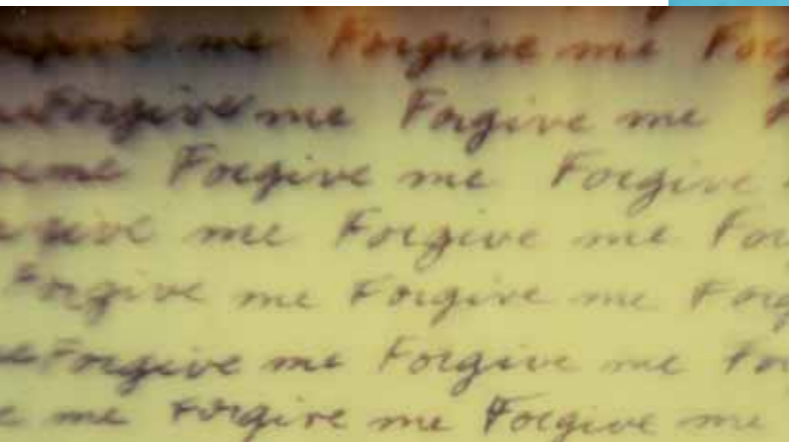 me Forgive me
Forgive me Forgive me
me Forgive me Forgive
me Forgive me
Forgive me Forgive me
Forgive me Forgive me
me Forgive me Forgive me